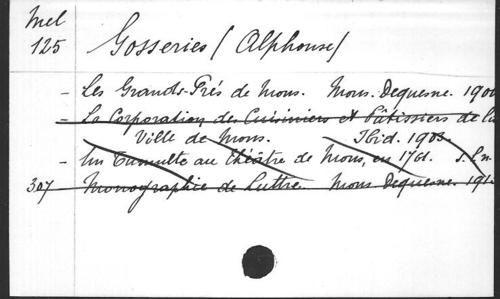 Mel
125
Gosseries (Alphonse)
- Les Grands-Prés de Mons. Mons. Dequesne. 190
- La Corporation des Cuisiniers et Pâtissiers de la
Ville de Mons. Ibid. 1903.
- Un Tumulte au théâtre de Mons, en 1761. s.l.n.
307 - Monographie de Luttre. Mons Dequesne. 191